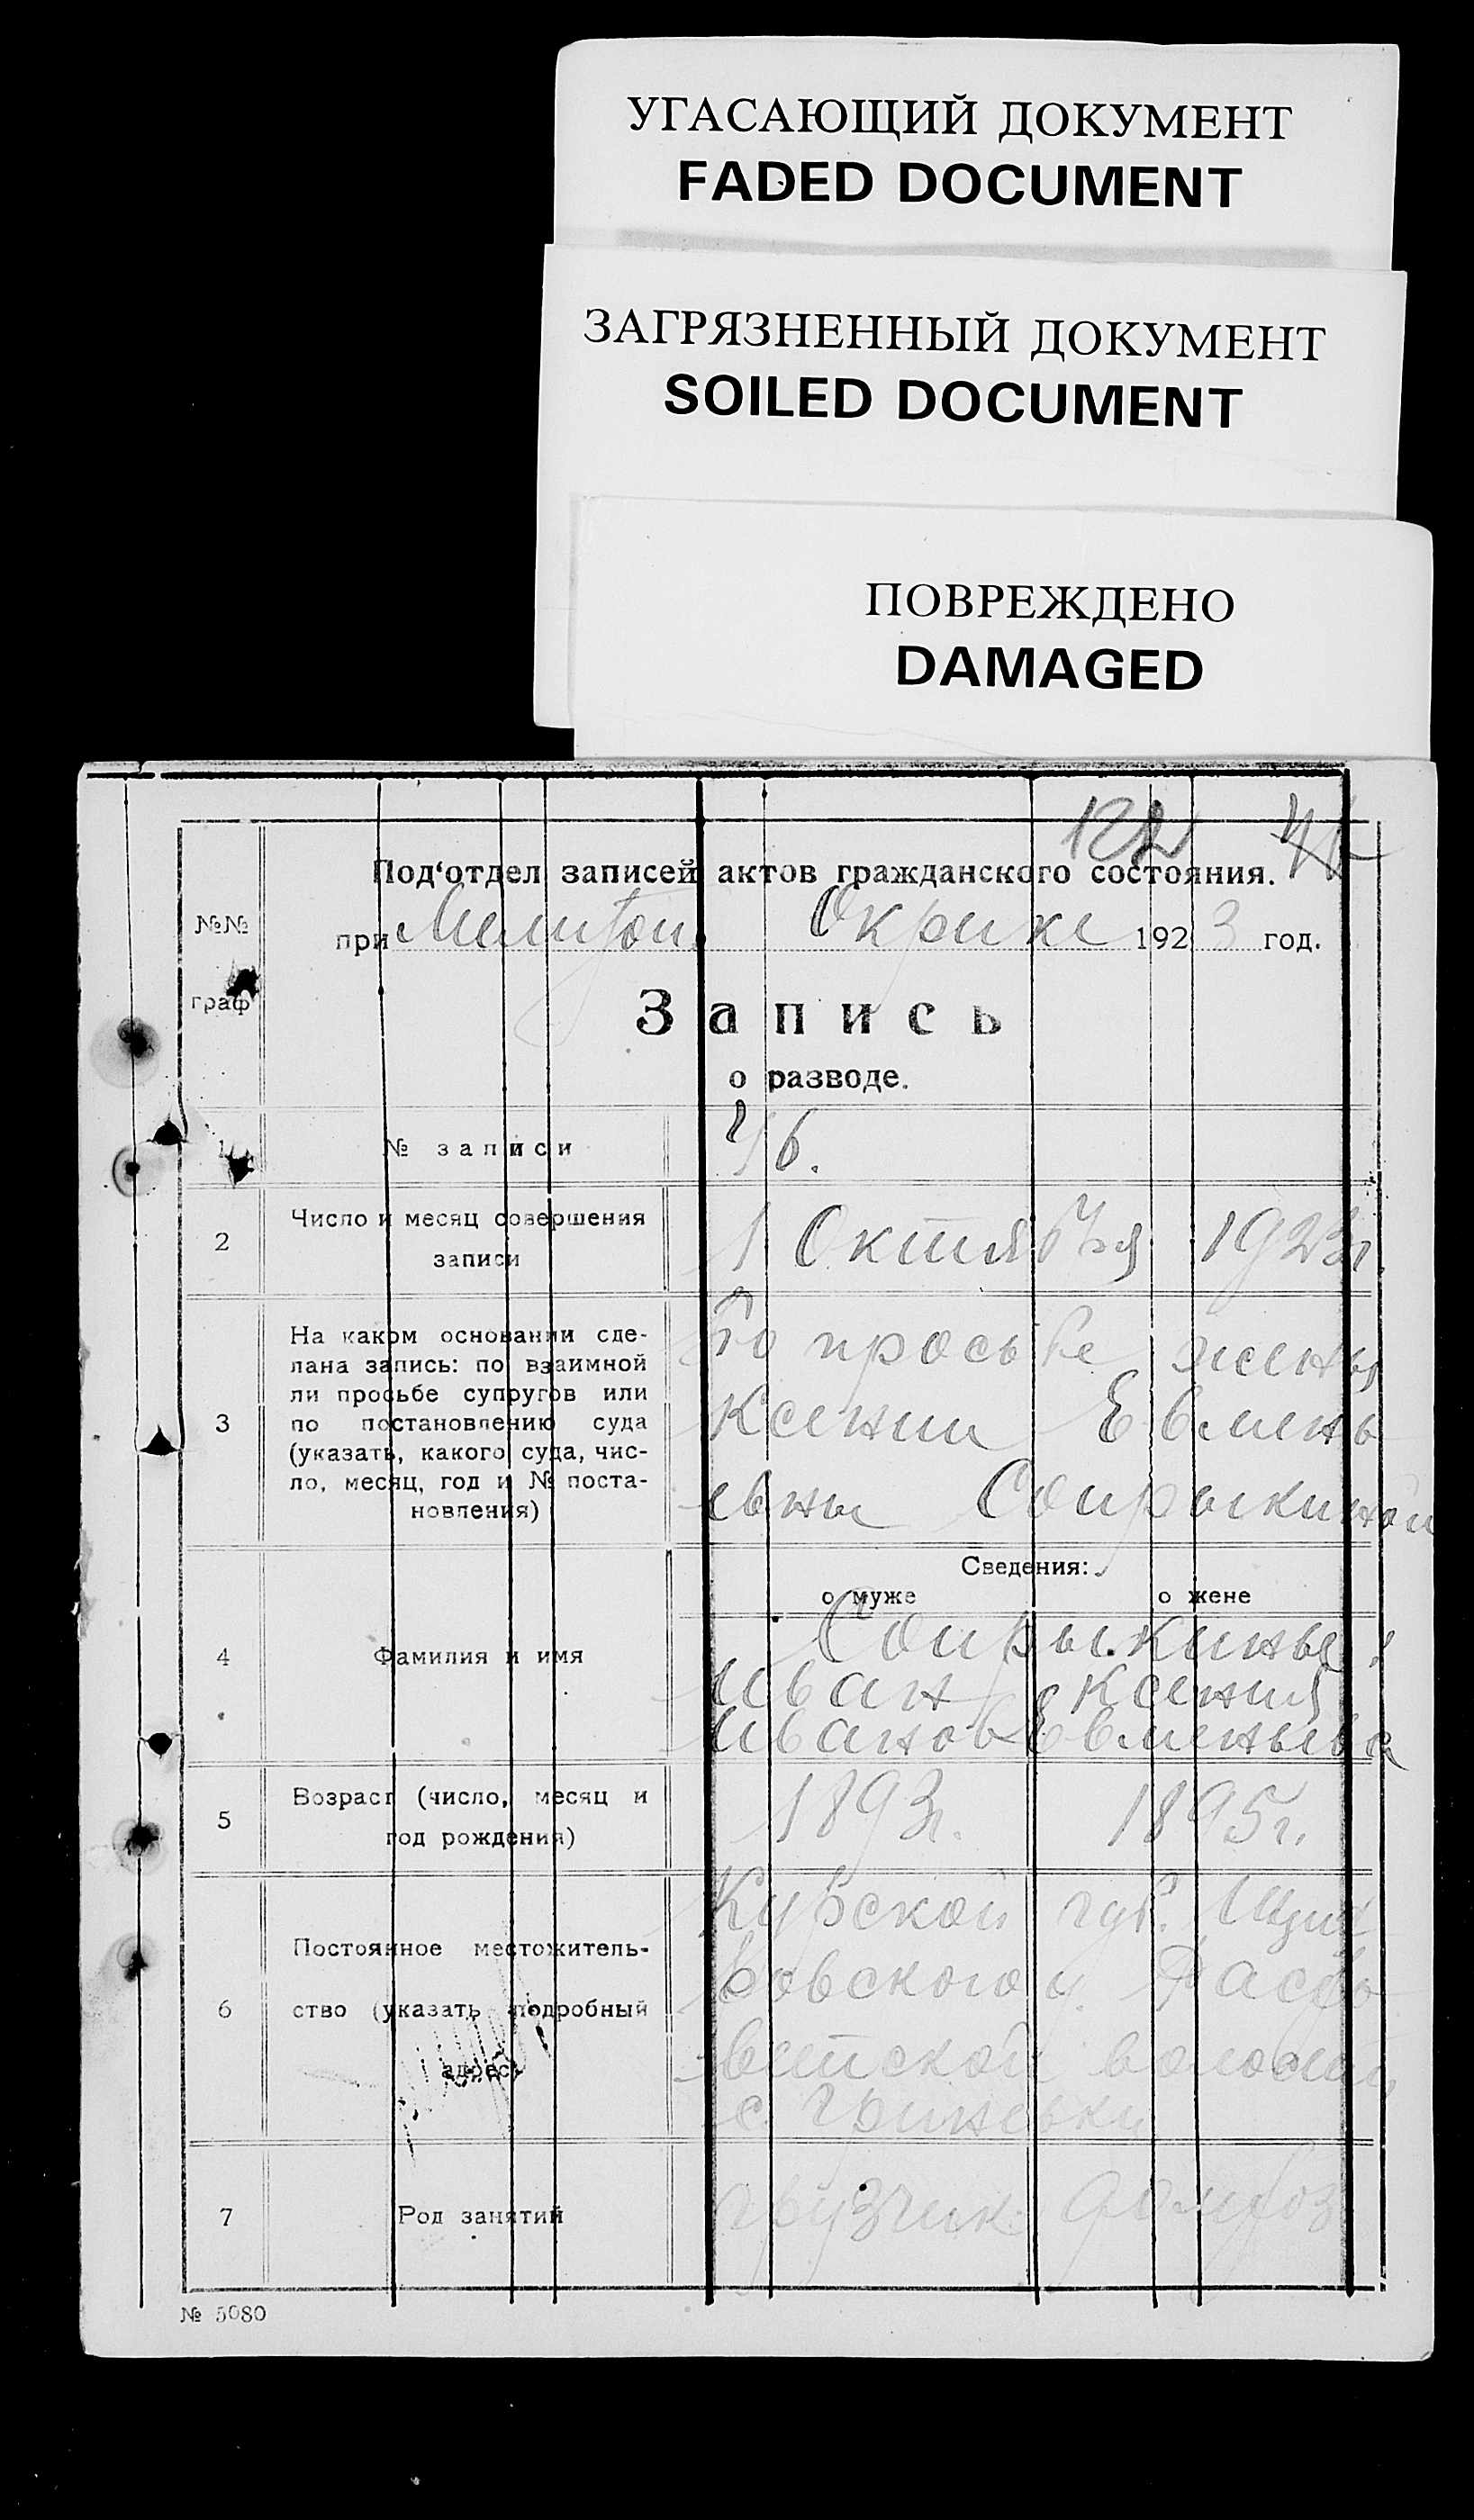 УГАСАЮЩИЙ ДОКУМЕНТ
FADED DOCUMENT
ЗАГРЯЗНЕННЫЙ ДОКУМЕНТ
SOILED DOCUMENT
ПОВРЕЖДЕНО
DAMAGED
122
Под‘отдел записей актов гражданского состояния.
№№
граф
при Мелитоп. Окрике 1923 год.
Запись
о разводе.
1 № записи
2 Число и месяц совершения
записи
1 Октября 1923г.
3 На каком основании сде-
лана запись: по взаимной
ли просьбе супругов или
по постановлению суда
(указать, какого суда, чис-
ло, месяц, год и № поста-
новления)
По просьбе жены
Ксении Евмень
евны Соирыкиной
Сведения:
о муже о жене
4 Фамилия и имя
Соирыкины
Иван Ксения
Иванов Евменьева
5 Возраст (число, месяц и
год рождения)
1893г. 1895г.
6 Постоянное местожитель-
ство (указать подробный
адрес)
Курской губ.
ровского у.
волости
с.
7 Род занятий
грузчик
№ 5080